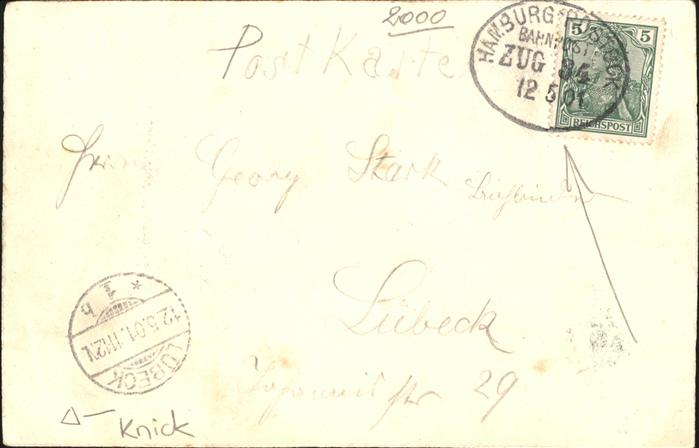 2000
Post Karte
HAMBURG-ROSTOCK
BAHNPOST
ZUG 34
12 5 01
5 5
REICHSPOST
Herrn Georg Stark
Lübeck
29
LÜBECK
12.5.01.
* 1 b
Knick